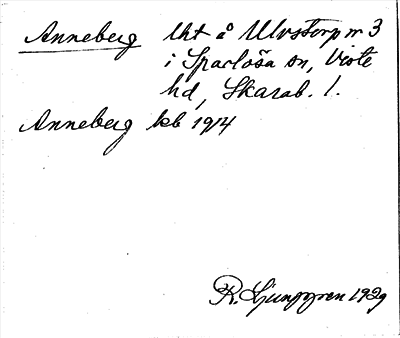 Anneberg lht å Ulvstorp nr 3
i Sparlösa sn, Viste
hd, Skarab. l.
Anneberg kb 1914
R. Ljunggren 1929